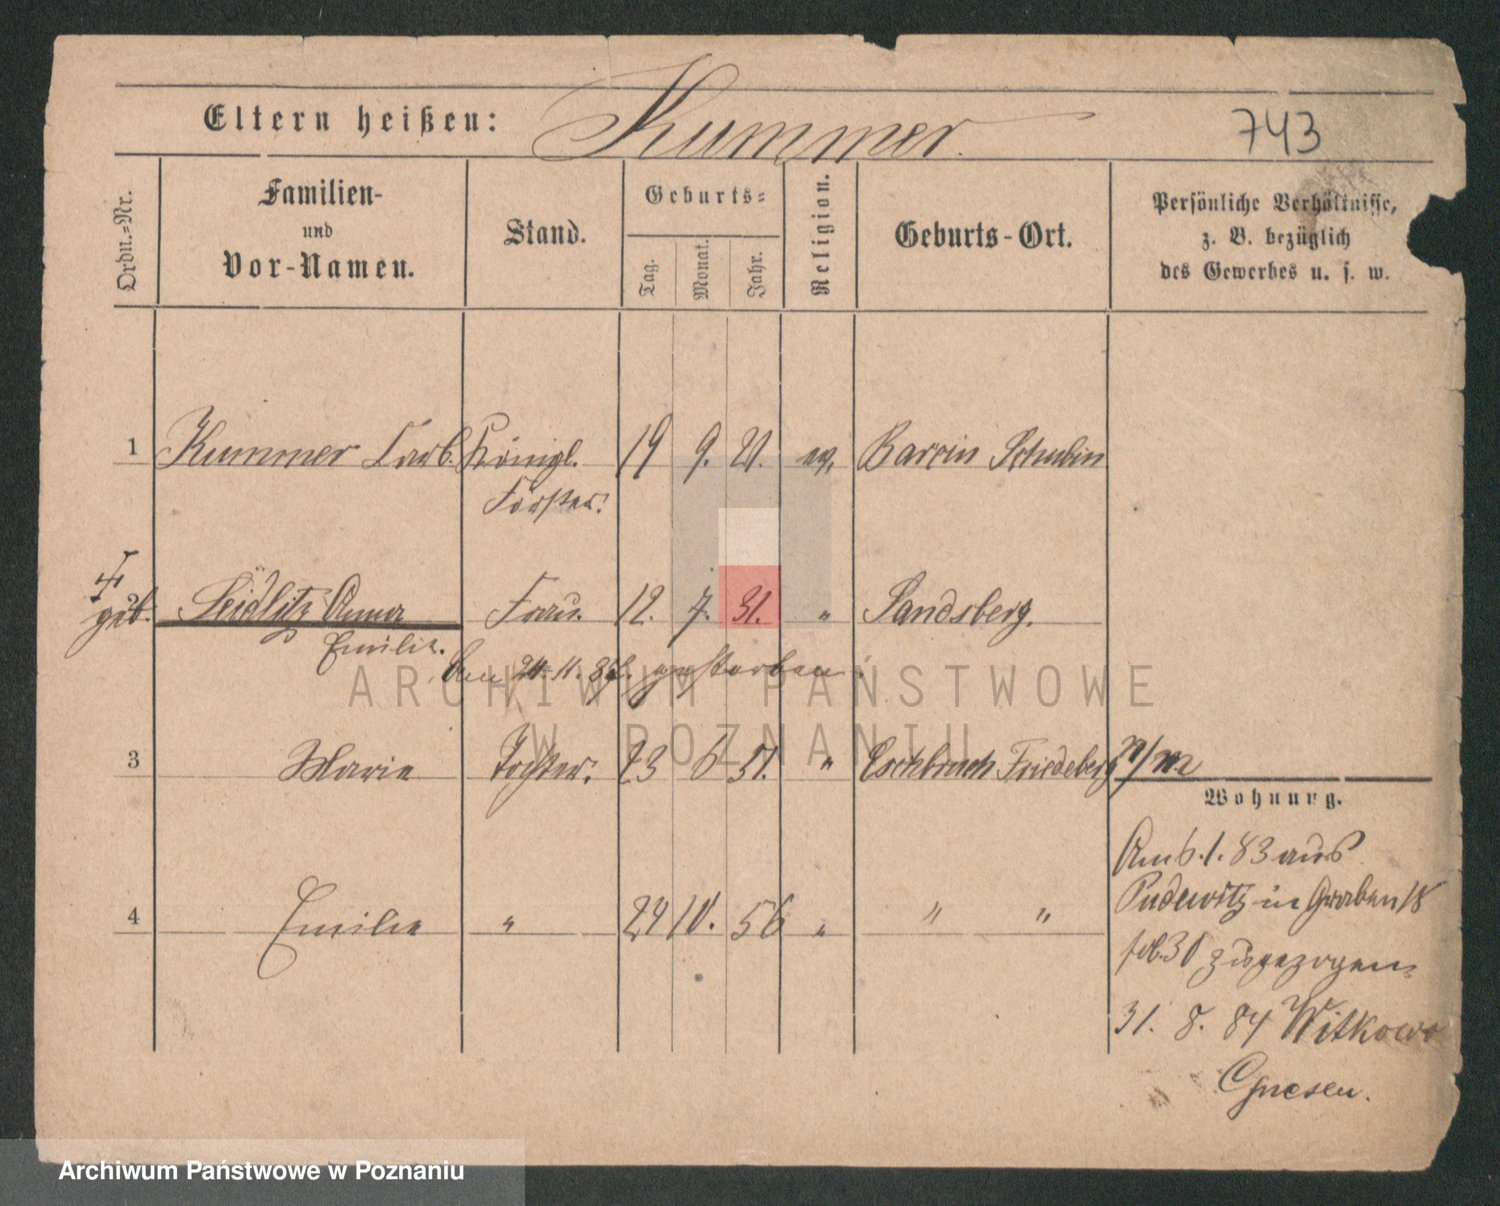 Eltern heißen: Kummer. 743
Ordn.=Nr. Familien- und Vor-Namen. Stand. Geburts= Tag. Monat. Jahr. Religion. Geburts-Ort. Persönliche Verhältnisse, z. B. bezüglich des Gewerbes u. s. w.
1 Kummer Königl. 19 9. 21. ev. Barcin Schubin
Förster.
geb. Seidlitz Anna Frau. 12. 7. 31. " Landsberg.
Emilie.
den 24. 11. 87. gestorben.
3 Marie Tochter. 23 6 51. " Eschbruch Friedeberg N/M
Wohnung.
Am 6. 1. 83 aus
4 Emilie " 24 10. 56 " " "
Pudewitz in Graben 18
fol. 30 zugezogen
31. 8. 84 Witkowo
Gnesen.
ARCHIWUM PAŃSTWOWE
W POZNANIU
Archiwum Państwowe w Poznaniu